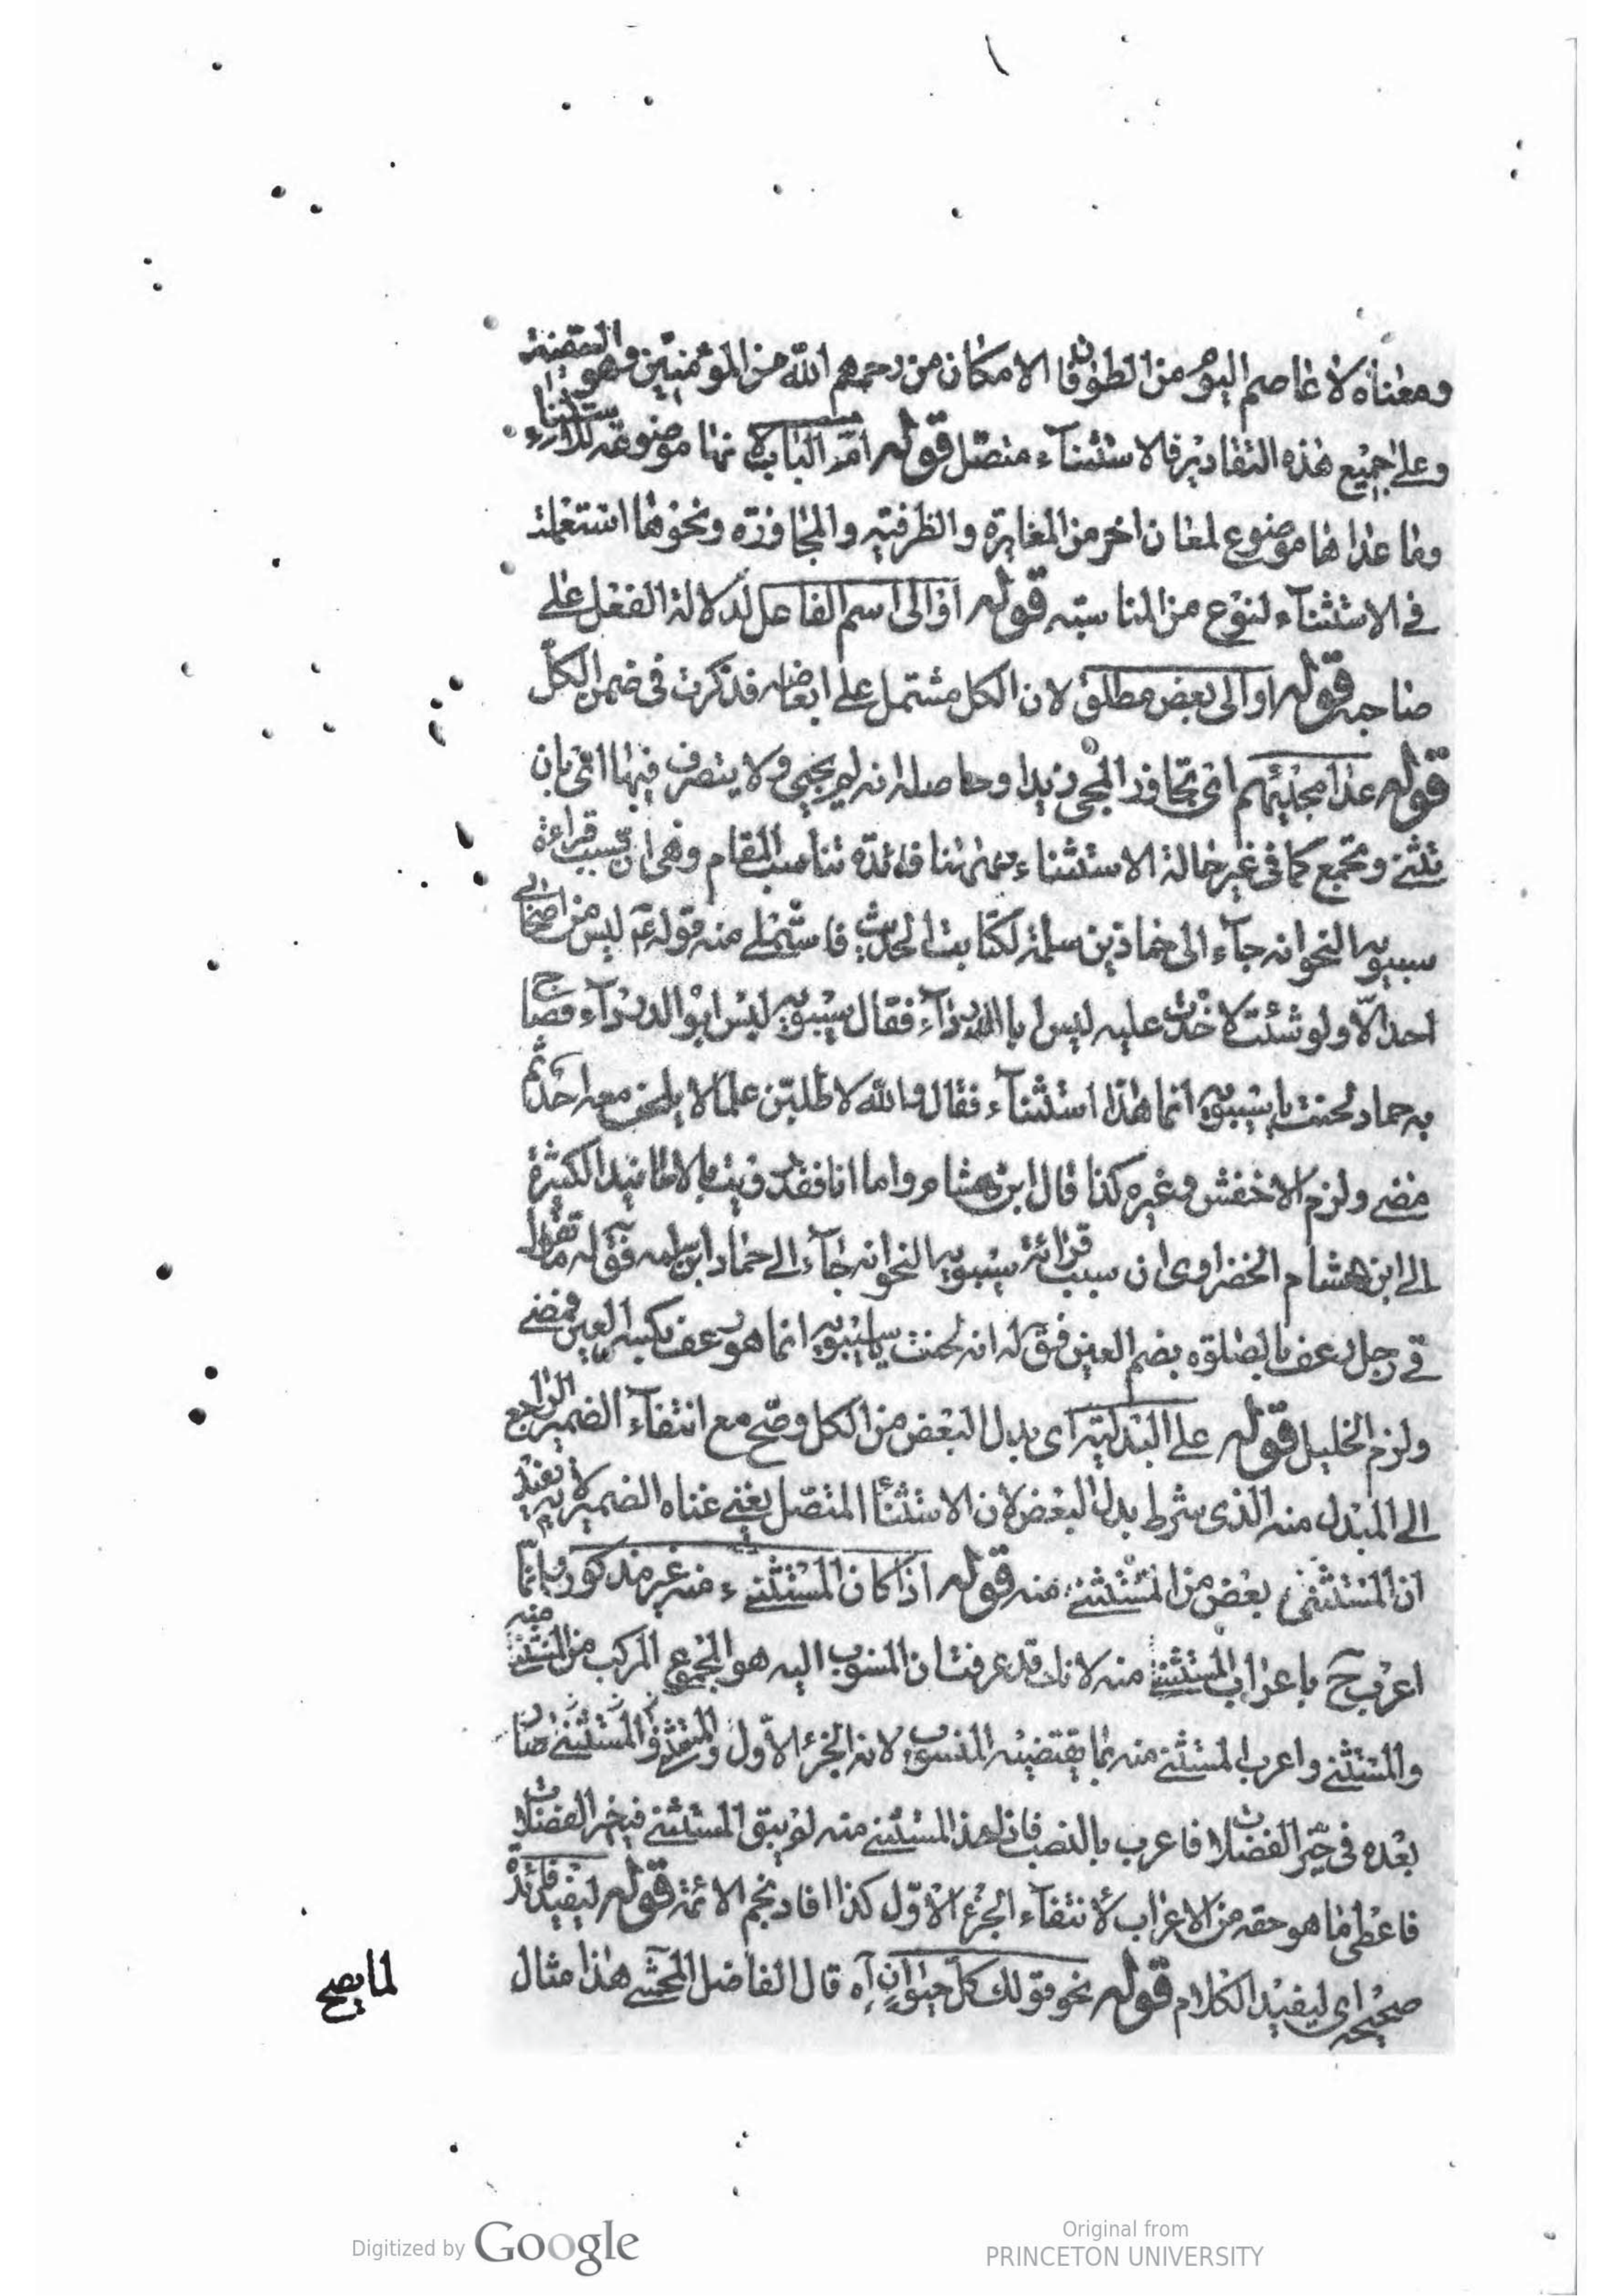 ومعناه لا عاصم اليوم من الطوفان الا مكان من رحمهم الله من المؤمنين وهو السفينة
وعلى جميع هذه التقادير فالاستثناء متصل قوله ام الباب لانها موضوعة للاستثناء
وما عداها موضوع لمعان اخر من المغايرة والظرفية والمجاوزة ونحوها استعملت
في الاستثناء لنوع من المناسبة قوله او الى اسم الفاعل لدلالة الفعل على
صاحبه قوله او الى بعض مطلق لان الكل مشتمل على ابعاضه فذكرت في ضمن الكل
قوله عدا مجيئهم اي تجاوز المجي زيدا وحاصله انه لم يجيء ولا يتصرف فيها اي بان
تثنى وتجمع كما في غير حالة الاستثناء ههنا فائدة تناسب المقام وهي ان سبب قراءة
سيبويه النحو انه جاء الى حماد بن سلمة لكتابت الحديث فاستملى منه قوله عم ليس من اصحابي
احد الا ولو شئت لاخذت عليه ليس ابا الدرداء فقال سيبويه ليس ابو الدرداء فصاح
به حماد لحنت يا سيبويه انما هذا استثناء فقال والله لاطلبن علما لا يلحن معه احد ثم
مضى ولزم الاخفش وغيره كذا قال ابن هشام واما انا فقد رويت بالاسانيد الكثيرة
الى ابن هشام الخضراوي ان سبب قرائة سيبويه النحو انه جاء الى حماد ابن سلمه فقوله ما تقول
في رجل رعف بالصلوة بضم العين فق له انه لحنت يا سيبويه انما هو رعف بكسر العين فمضى
ولزم الخليل قوله على البدلية اي بدل البعض من الكل وصح مع انتفاء الضمير الراجع
الى المبدل منه الذي شرط بدل البعض لان الاستثنأ المتصل يغني غناه الضمير لانه يفيد
ان المستثنى بعض من المستثنى منه قوله اذا كان المستثنى منه غير مذكور انما
اعرب ح باعراب المستثنى منه لانك قد عرفت ان المنسوب اليه هو المجموع المركب من المستثنى منه
والمستثنى واعرب المستثنى منه بما يقتضيه المنسوب لانه الجزء الاول والمستثنى صار
بعده في حيز الفضلات فاعرب بالنصب فاذا حذف المستثنى منه لم يبق المستثنى في حيز الفضلات
فاعطى ما هو حقه من الاعراب لانتفاء الجزء الاول كذا افاد نجم الائمة قوله ليفيد فائدة
صحيحه اي ليفيد الكلام قوله نحو قولك كل حيوان آه قال الفاضل المحشي هذا مثال
لما يصح
Digitized by Google
Original from
PRINCETON UNIVERSITY